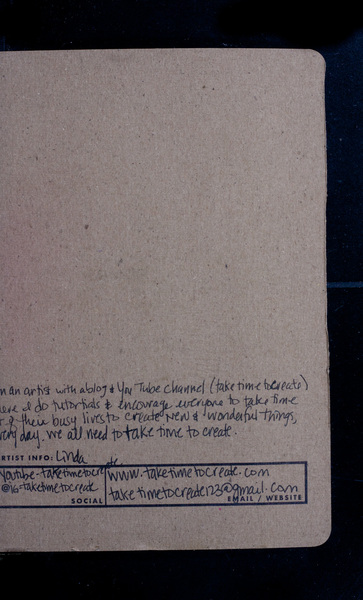 m an artist with a blog & You Tube channel (take time to create)
here I do tutortials & encourage everyone to take time
of their busy lives to create new & wonderful things,
very day. we all need to take time to create.
ARTIST INFO: Linda
Youtube-taketimetocreate
@IG-taketimetocreate
SOCIAL
www.taketimetocreate.com
taketimetocreate123@gmail.com
EMAIL / WEBSITE